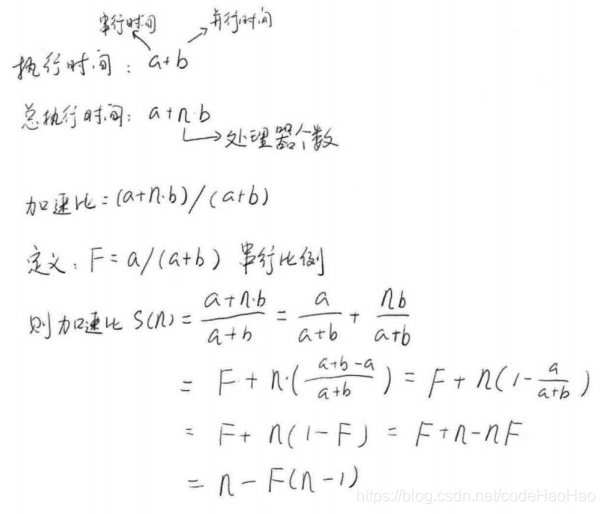 串行时间 并行时间
执行时间：a+b
总执行时间：a+n·b
处理器个数
加速比=(a+n·b)/(a+b)
定义：F=a/(a+b) 串行比例
则加速比 S(n)=\frac{a+n·b}{a+b}=\frac{a}{a+b}+\frac{nb}{a+b}
=F+n·(\frac{a+b-a}{a+b})=F+n(1-\frac{a}{a+b})
=F+n(1-F)=F+n-nF
=n-F(n-1)
https://blog.csdn.net/codeHaoHao